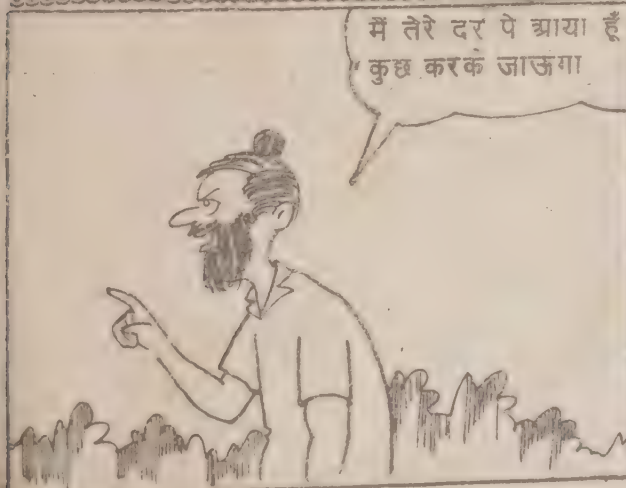 मैं तेरे दर पे आया हूँ
कुछ करके जाऊंगा